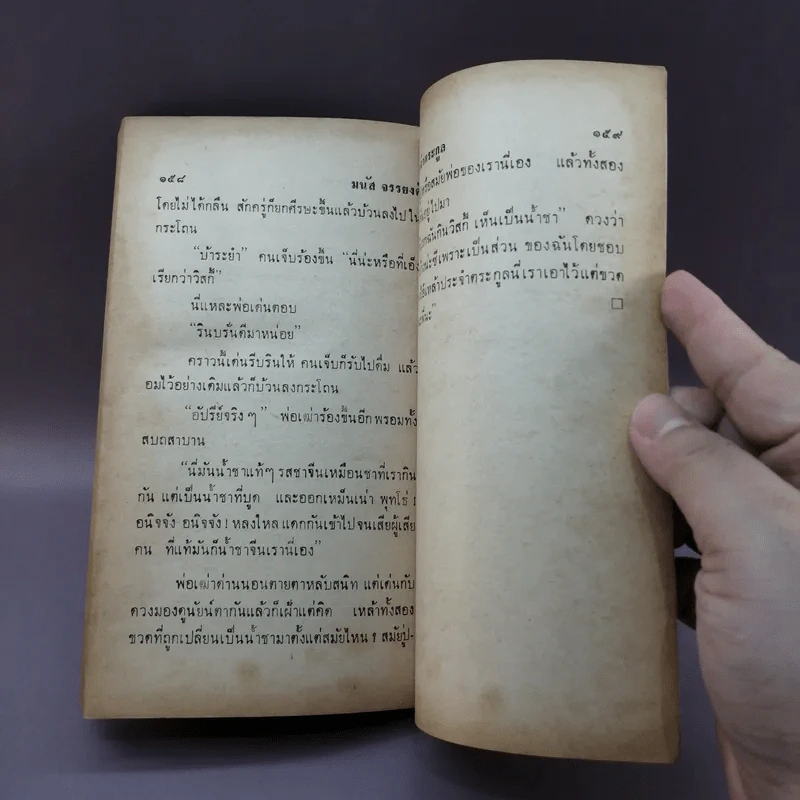 ๑๕๘ มนัส จรรยงค์
โดยไม่ได้กลืน สักครู่ก็ยกศีรษะขึ้นแล้วบ้วนลงไป ใน
กระโถน
“บ้าระยำ” คนเจ็บร้องขึ้น “นี่น่ะหรือที่เอ็ง
เรียกว่าวิสกี้”
นี่แหละพ่อเด่นตอบ
“รินบรั่นดีมาหน่อย”
คราวนี้เด่นรีบรินให้ คนเจ็บก็รับไปดื่ม แล้ว
อมไว้อย่างเดิมแล้วก็บ้วนลงกระโถน
“อัปรีย์จริง ๆ” พ่อเฒ่าร้องขึ้นอีกพรอมทั้ง
สบถสาบาน
“นี่มันน้ำชาแท้ๆ รสชาจีนเหมือนชาที่เรากิน
กัน แต่เป็นน้ำชาที่บูด และออกเหม็นเน่า พุทโธ่
อนิจจัง อนิจจัง! หลงใหล แดกกันเข้าไปจนเสียผู้เสีย
คน ที่แท้มันก็น้ำชาจีนเรานี่เอง”
พ่อเฒ่าด่านนอนตายตาหลับสนิท แต่เด่นกับ
ดวงมองดูนัยน์ตากันแล้วก็เฝ้าแต่คิด เหล้าทั้งสอง
ขวดที่ถูกเปลี่ยนเป็นน้ำชามาตั้งแต่สมัยไหน? สมัยปู่-
๑๕๙
ตระกูล
หรือสมัยพ่อของเรานี่เอง แล้วทั้งสอง
อยู่ไปมา
ฉันกินวิสกี้ เห็นเป็นน้ำชา” ดวงว่า
น่ะซีเพราะเป็นส่วน ของฉันโดยชอบ
เหล้าประจำตระกูลนี่เราเอาไว้แต่ขวด